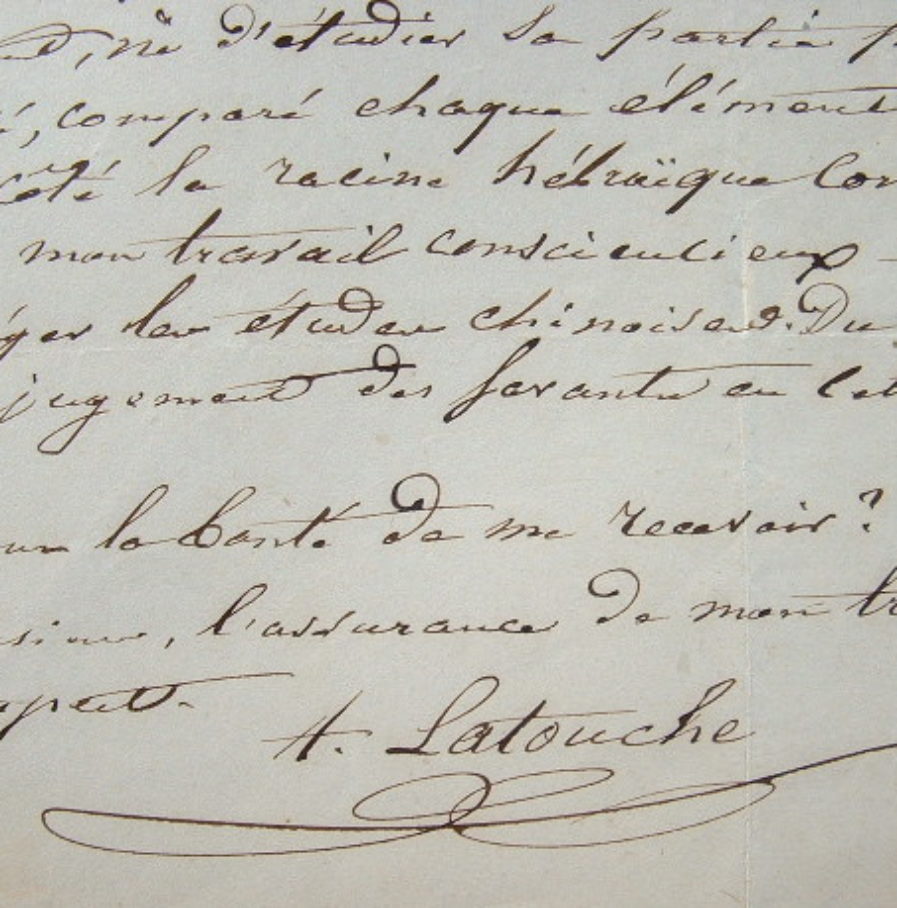 , ni d'étudier sa partie
, comparé chaque élément
côté la racine hébraïque
mon travail consciencieux
les études chinoises. Du
jugement des savants en
la bonté de me recevoir ?
, l'assurance de mon
A. Latouche